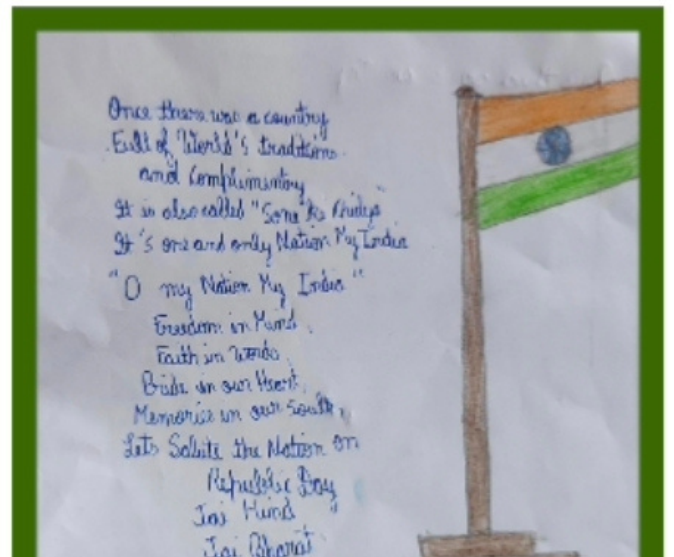 Once there was a country
Full of World's traditions
and Complimentory
It is also called "Sone Ki Chidiya
It's one and only Nation My India
"O my Nation My India"
Freedom in Mind,
Faith in Words,
Pride in our Heart,
Memories in our Souls,
Lets Salute the Nation on
Republic Day
Jai Hind
Jai Bharat